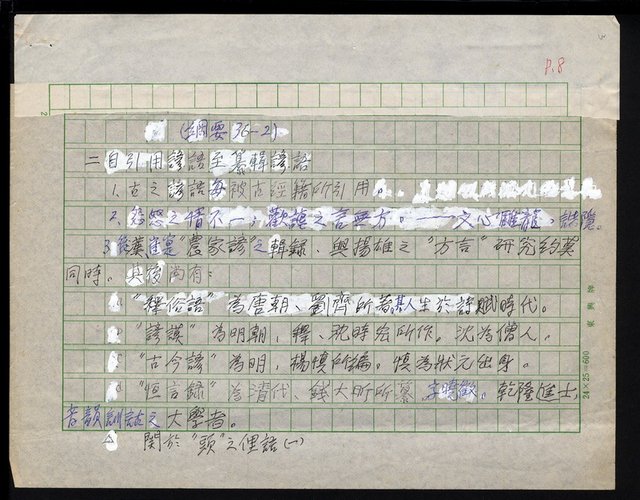 P.8
(綱要36-2)
二、自引用諺語至纂輯諺語
1. 古之諺語每被古經籍所引用。
2. 怒之情不一；歡謔之言無方。——文心雕龍，諧隱。
3. 後漢崔寔“農家諺”之輯錄、與揚雄之“方言”研究約莫
同時。其後尚有：
“釋俗語”為唐朝、劉齊所著其人生於詩賦時代。
“諺謨”為明朝，釋、沈時弘所作。沈為僧人。
“古今諺”為明，楊慎所編。慎為狀元出身。
d “恒言錄”為清代、錢大昕所纂，李時敏。乾隆進士，
考韻訓詁之大學者。
關於“頭”之俚語(一)
24×25=600